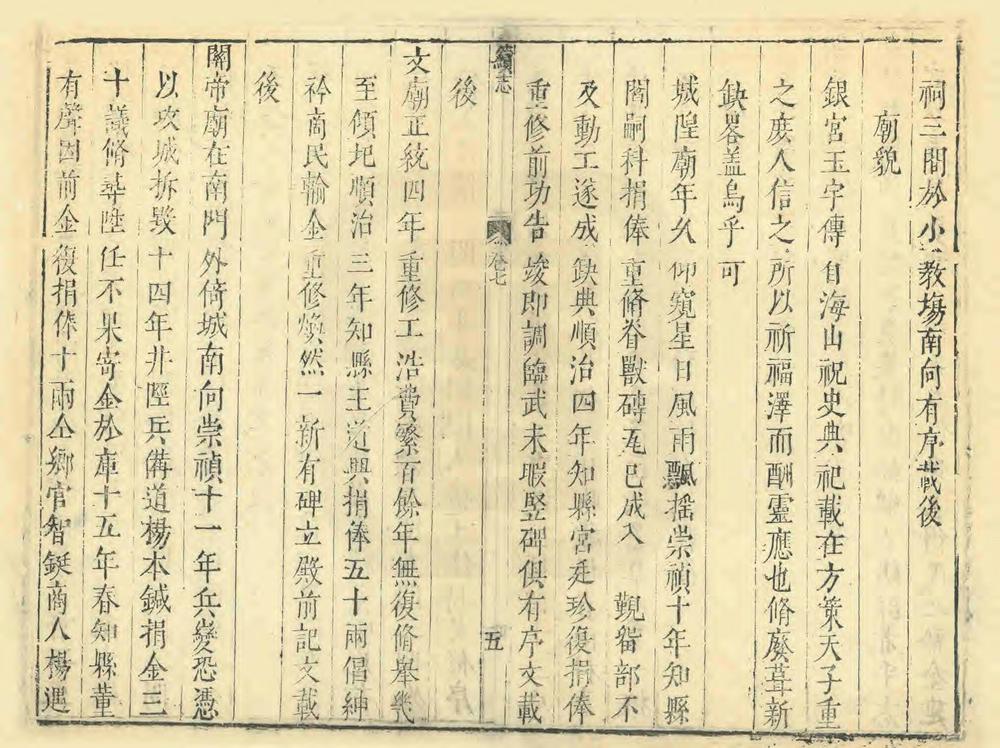 祠三間於小教場南向有序載後
廟貌
銀宮玉宇傳自海山祝史典祀載在方策天子重
之庶人信之所以祈福澤而酬靈應也脩廢葺新
缺畧盖烏乎可
城隍廟年久仰窺星日風雨飄搖崇禎十年知縣
閻嗣科捐俸重脩脊獸磚瓦已成入覲留部不
及動工遂成缺典順治四年知縣宮廷珍復捐俸
重修前功告竣即調臨武未暇竪碑俱有序文載
後
續志
卷七
五
文廟正統四年重修工浩費繁百餘年無復脩舉幾
至傾圯順治三年知縣王道興捐俸五十兩倡紳
衿商民輸金重修煥然一新有碑立殿前記文載
後
關帝廟在南門外倚城南向崇禎十一年兵變恐憑
以攻城拆毀十四年井陘兵備道楊本鍼捐金三
十議脩陞任不果寄金於庫十五年春知縣董
有聲因前金復捐俸十兩仝鄉官智鋌商人楊遇